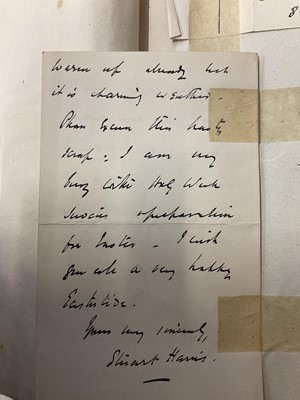 warm up already but
it is charming weather.
Please excuse this hasty
scrap. I am very
busy with Holy Week
services & preparation
for Easter. I wish
you all a very happy
Eastertide.
Yours very sincerely,
Stuart Harris.
8